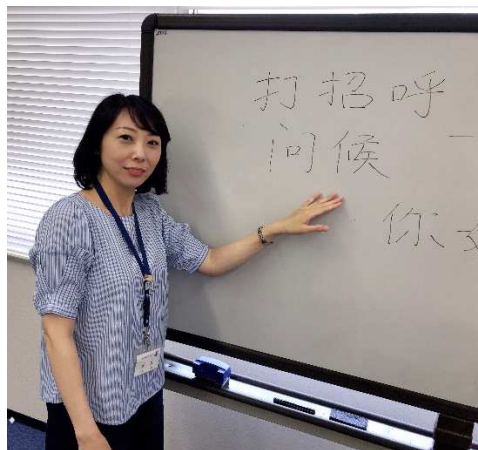 打招呼
问候 一
你